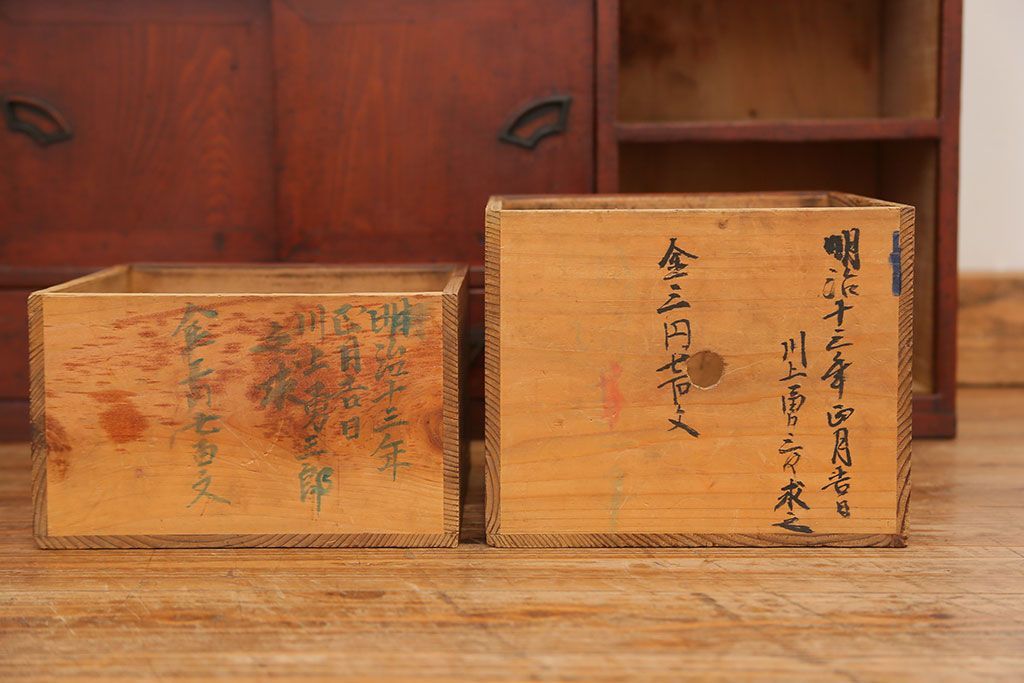 明治十三年
正月吉日
川上勇三郎
之求
金三円七百文
明治十三年正月吉日
川上勇三郎求之
金三円七百文